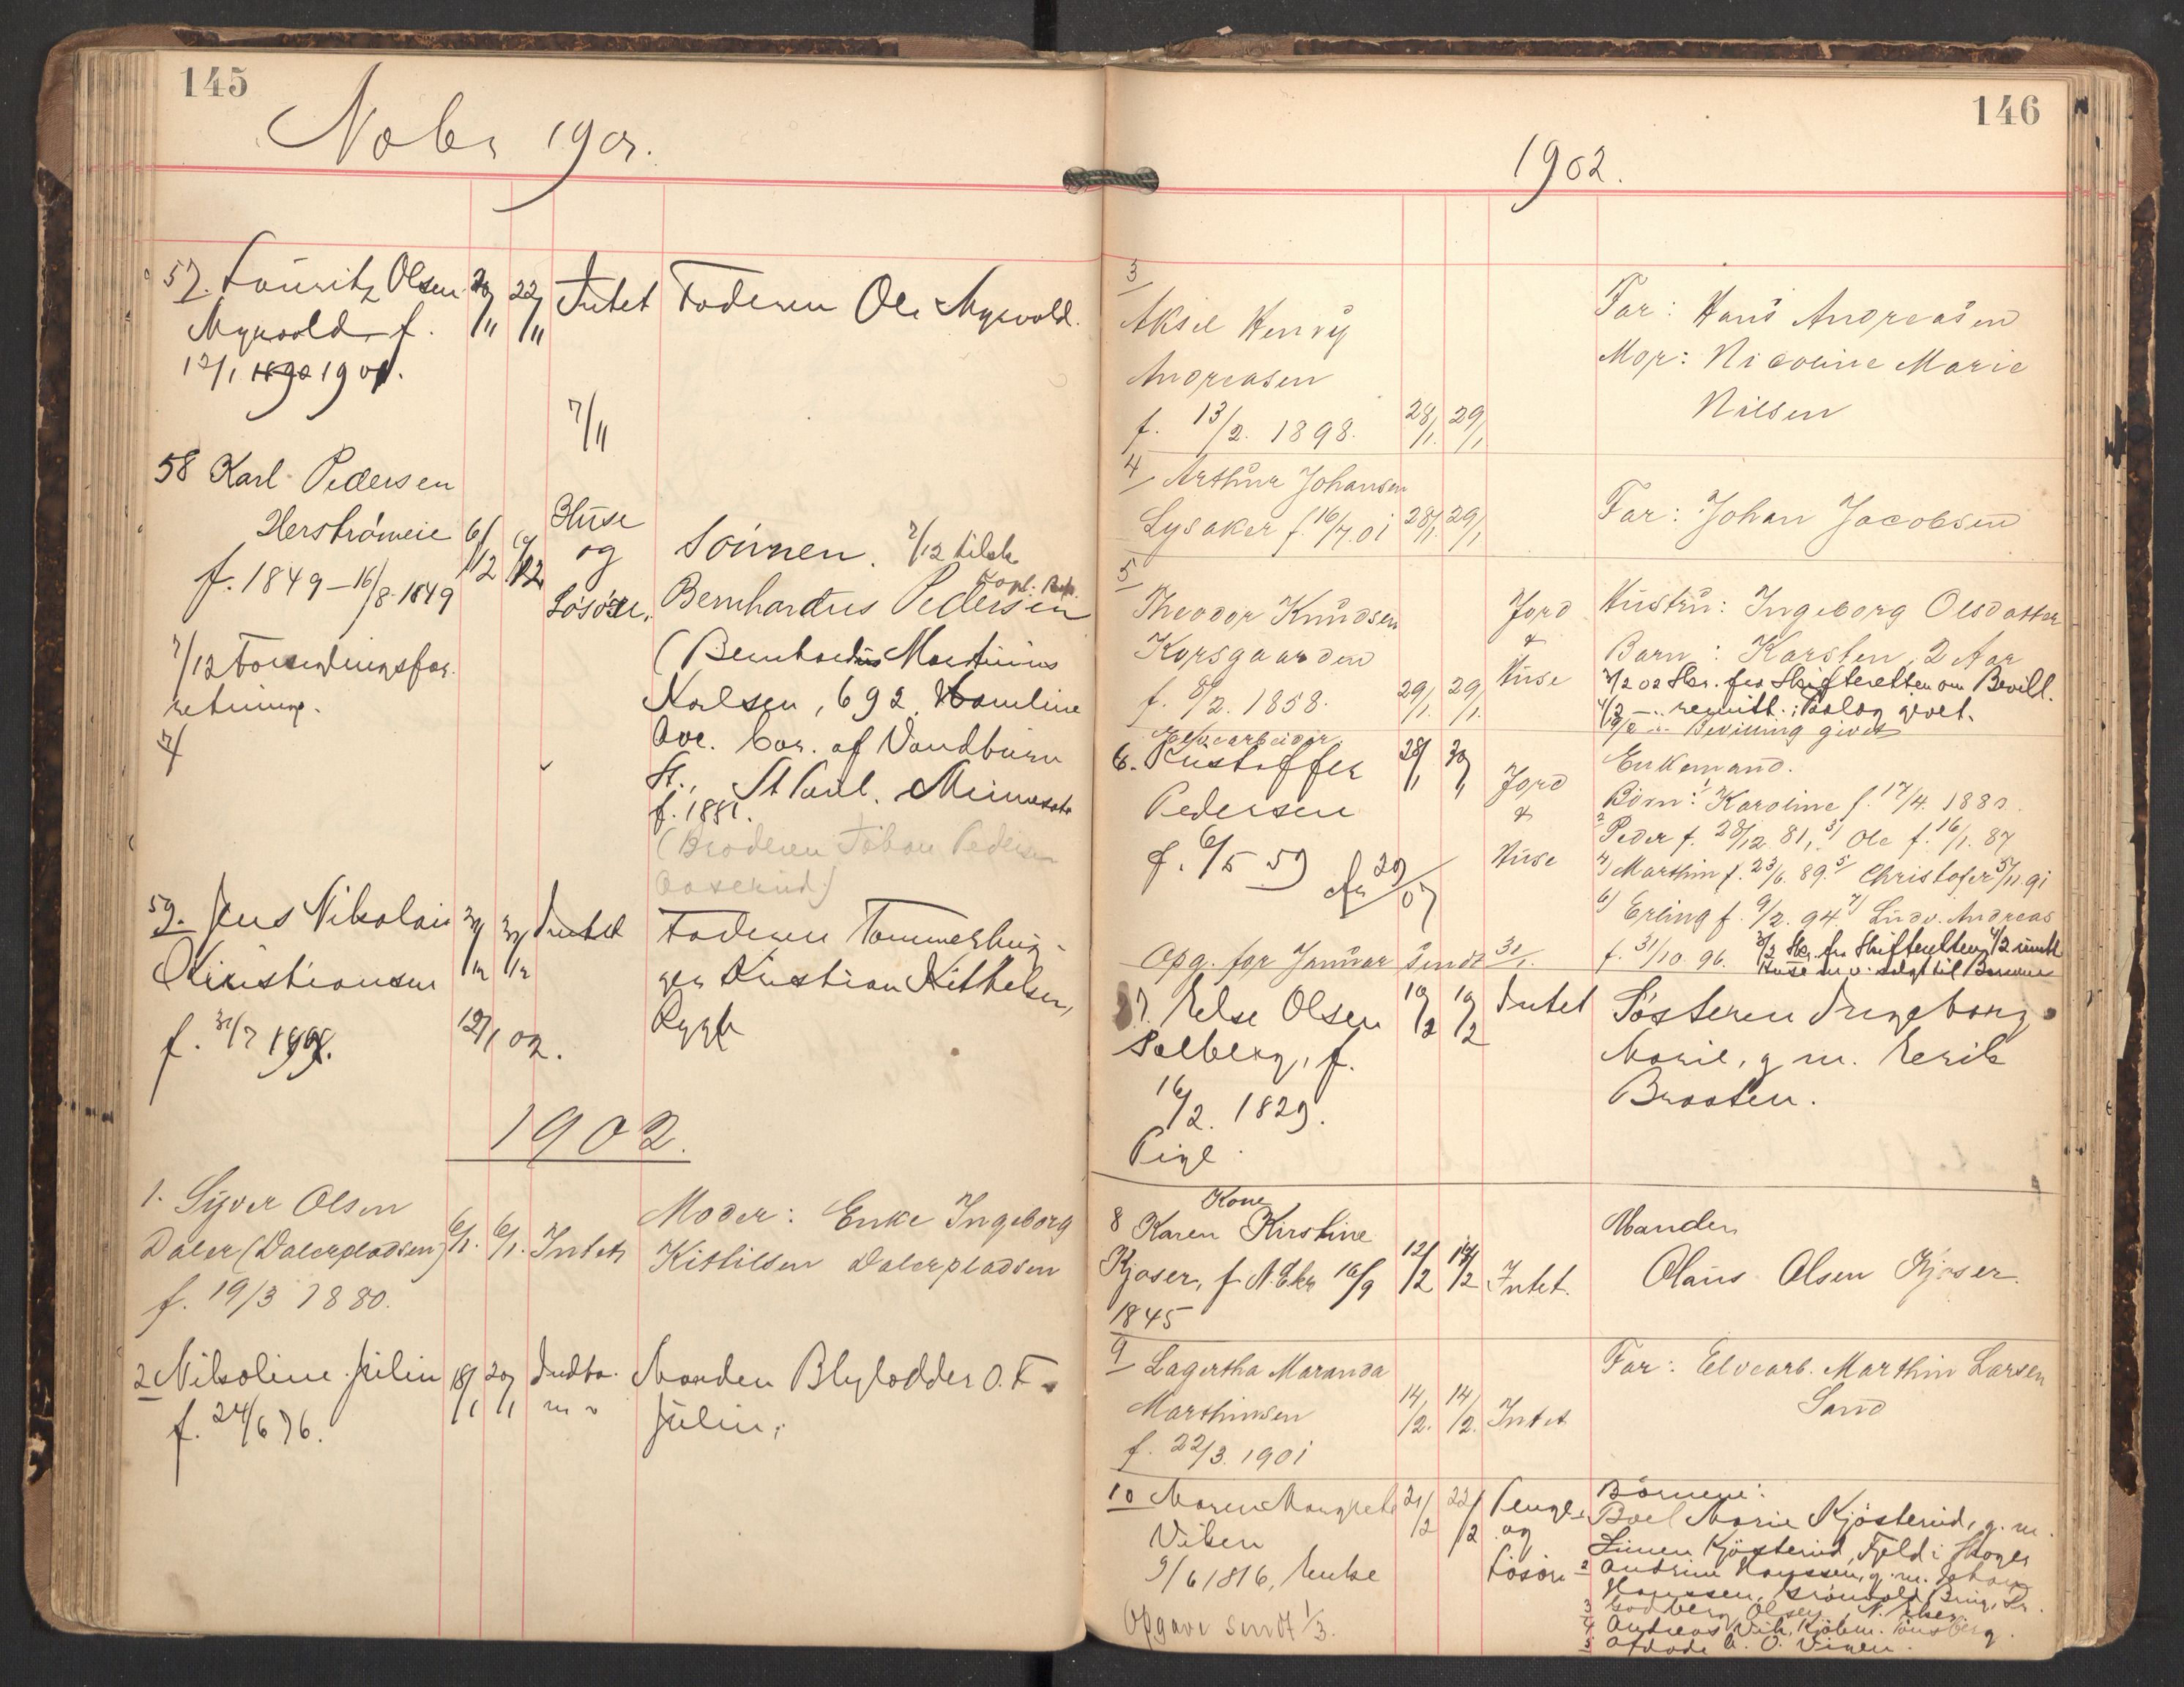 145
Nobr 1901.
57. Lauritz Olsen 20/11 22/11 Intet Faderen Ole Myrvold.
Myrvold f.
12/1 1890 1901.
7/11
58 Karl Pedersen
Herströmeie 6/12 6/12 Huse og Lösöre.
f. 1849 – 16/8 1849
7/12
Sönnen. 7/12
Bernhardus Pedersen
(Bernhardus Martinius
Karlsen, 692 Hamline
Ave. Cor. of Vandburn
St., St Paul. Minnesota
f. 1881.
(Broderen Johan Pedersen
Aaserud)
59. Jens Nikolai 30/12 31/12 Intet Faderen Tømmerhug-
Kristiansen ger Kristian Kittelsen,
f. 31/7 12/1 02. Rygh
1902.
1. Syver Olsen Moder: Enke Ingeborg
Daler (Dalerpladsen) 6/1. 6/1. Intet Kittilsen Dalerpladsen
f. 19/3 1880.
2 Nikoline Julin 18/1 20/1 Indbo Manden Blylodder O. F.
f. 24/6 76. m v Julin.
146
1902.
3
Aksel Henry Far: Hans Andreasen
Andreasen Mor: Nicoline Marie
f. 13/2. 1898. 28/1. 29/1 Nilsen
4 Arthur Johansen
Lysaker f. 16/7.01 28/1. 29/1 Far: Johan Jacobsen
5
Theodor Knudsen Jord Hustru: Ingeborg Olsdatter
Korsgaarden & Barn: Karsten, 2 Aar
f. 8/2. 1858. 29/1. 29/1. Huse 3/2 02 Skr. fra Skifteretten om Bevill.
4/2 –"– remitt.; Paalæg givet.
Bevilling givet
Elvearbeider
6. Kristoffer 28/1 30/1 Jord Enkemand.
Pedersen & Börn: 1) Karoline f. 17/4. 1880.
f. 6/5 59 Huse 2 Peder f. 28/12 81, 3) Ole f. 16/1. 87
4) Marthin f. 23/6. 89. 5) Christofer 5/11.91
6) Erling f. 9/2. 94 7) Ludv. Andreas
Opg. for Januar sendt 31/1. f. 31/10. 96. 3/2 Skr. fra Skifteretten, 4/2
Huse m v. solgt til Børnene
7. Else Olsen 10/2 10/2 Intet Søsteren Ingeborg
Solberg, f. Marie, g m. Erik
16/2. 1829. Braaten.
Pige
Kone
8 Karen Kirstine Manden
Kjøser, f. N. Eker 16/9 12/2 14/2 Intet. Olaus Olsen Kjøser.
1845
9 Lagertha Maranda Far: Elvearb. Marthin Larsen
Marthinsen 14/2. 14/2. Intet Sand
f. 22/3. 1901
10 Maren Margrete 21/2 22/2 Penge Börnene:
Viken og Boel Marie Kjøsterud, g. m.
9/6 1816, Enke Lösöre Simen Kjøsterud, Fjeld i Skoger
2 Andrine Hanssen, g. m. Johan
Hanssen, Grønvold,
3 Gudberg Olsen, N. Eker.
4 Andreas Vik, Kjøbm. Tönsberg.
5 Afdøde A. O. Viken.
Opgave sendt 1/3.